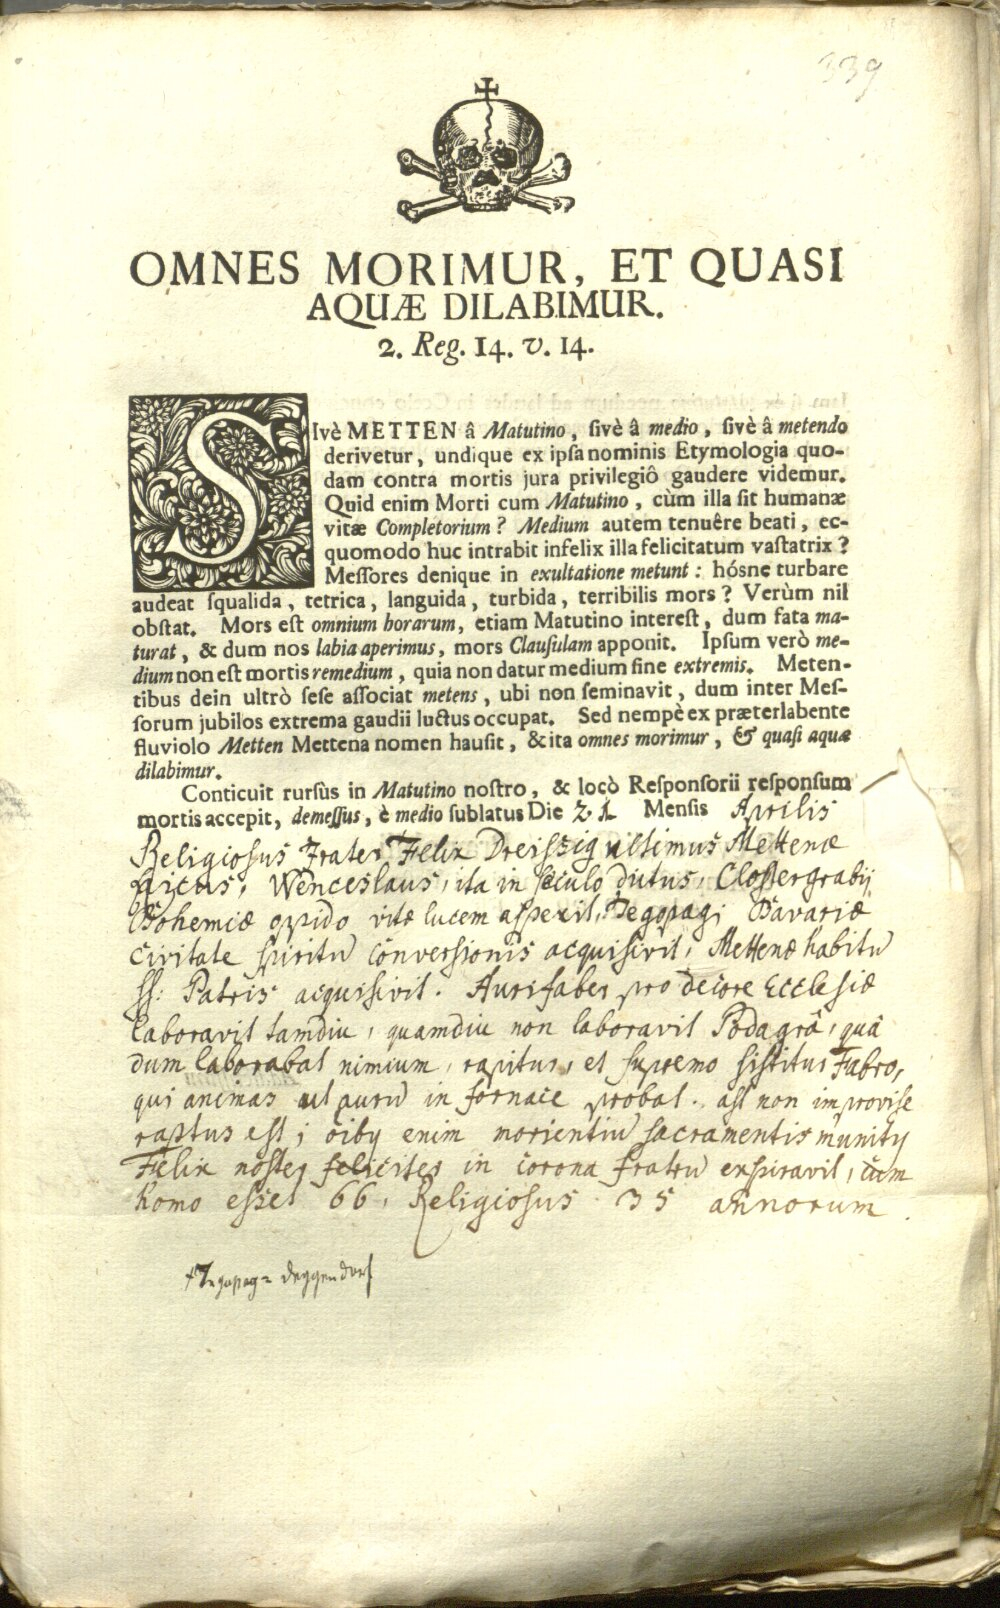 339
OMNES MORIMUR, ET QUASI
AQUÆ DILABIMUR.
2. Reg. 14. v. 14.
SIvè METTEN â Matutino, sivè â medio, sivè â metendo
derivetur, undique ex ipsa nominis Etymologia quo-
dam contra mortis jura privilegiô gaudere videmur.
Quid enim Morti cum Matutino, cùm illa sit humanæ
vitæ Completorium? Medium autem tenuêre beati, ec-
quomodo huc intrabit infelix illa felicitatum vastatrix?
Messores denique in exultatione metunt: hósne turbare
audeat squalida, tetrica, languida, turbida, terribilis mors? Verùm nil
obstat. Mors est omnium horarum, etiam Matutino interest, dum fata ma-
turat, & dum nos labia aperimus, mors Clausulam apponit. Ipsum verò me-
dium non est mortis remedium, quia non datur medium sine extremis. Meten-
tibus dein ultrò sese associat metens, ubi non seminavit, dum inter Mes-
sorum jubilos extrema gaudii luctus occupat. Sed nempè ex præterlabente
fluviolo Metten Mettena nomen hausit, & ita omnes morimur, & quasi aquæ
dilabimur.
Conticuit rursùs in Matutino nostro, & locò Responsorii responsum
mortis accepit, demessus, è medio sublatus Die 21 Mensis Aprilis
Religiosus Frater Felix Dreissig ultimus Mettenæ
laicus, Wenceslaus, ita in sæculo dictus, Clostergrabij
Bohemiæ oppido vitæ lucem aspexit, Degopagi Bavariæ
civitate spiritū conversionis acquisivit, Mettenæ habitū
SS: Patris acquisivit. Aurifaber pro decore Ecclesiæ
laboravit tamdiu, quamdiu non laboravit Podagrâ, quâ
dum laborabat nimium, rapitur, et supremo sistitur Fabro,
qui animas ut aurū in fornace probat. ast non improvise
raptus est; oibq enim morientiū sacramentis munitq
Felix noster feliciter in corona fratrū expiravit, cum
homo esset 66, Religiosus 35 annorum.
Deggendorf